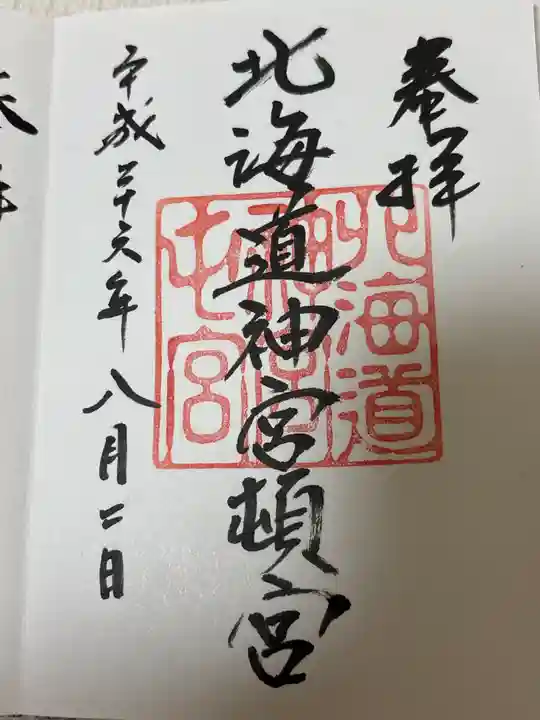 奉拝
北海道神宮頓宮
北海道
神宮
頓宮
平成二十六年八月二日